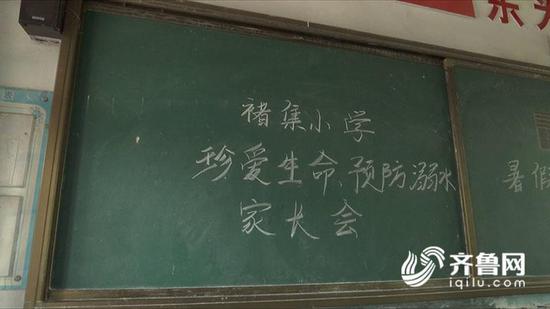 褚集小学
珍爱生命、预防溺水
家长会
暑假
齐鲁网
iqilu.com